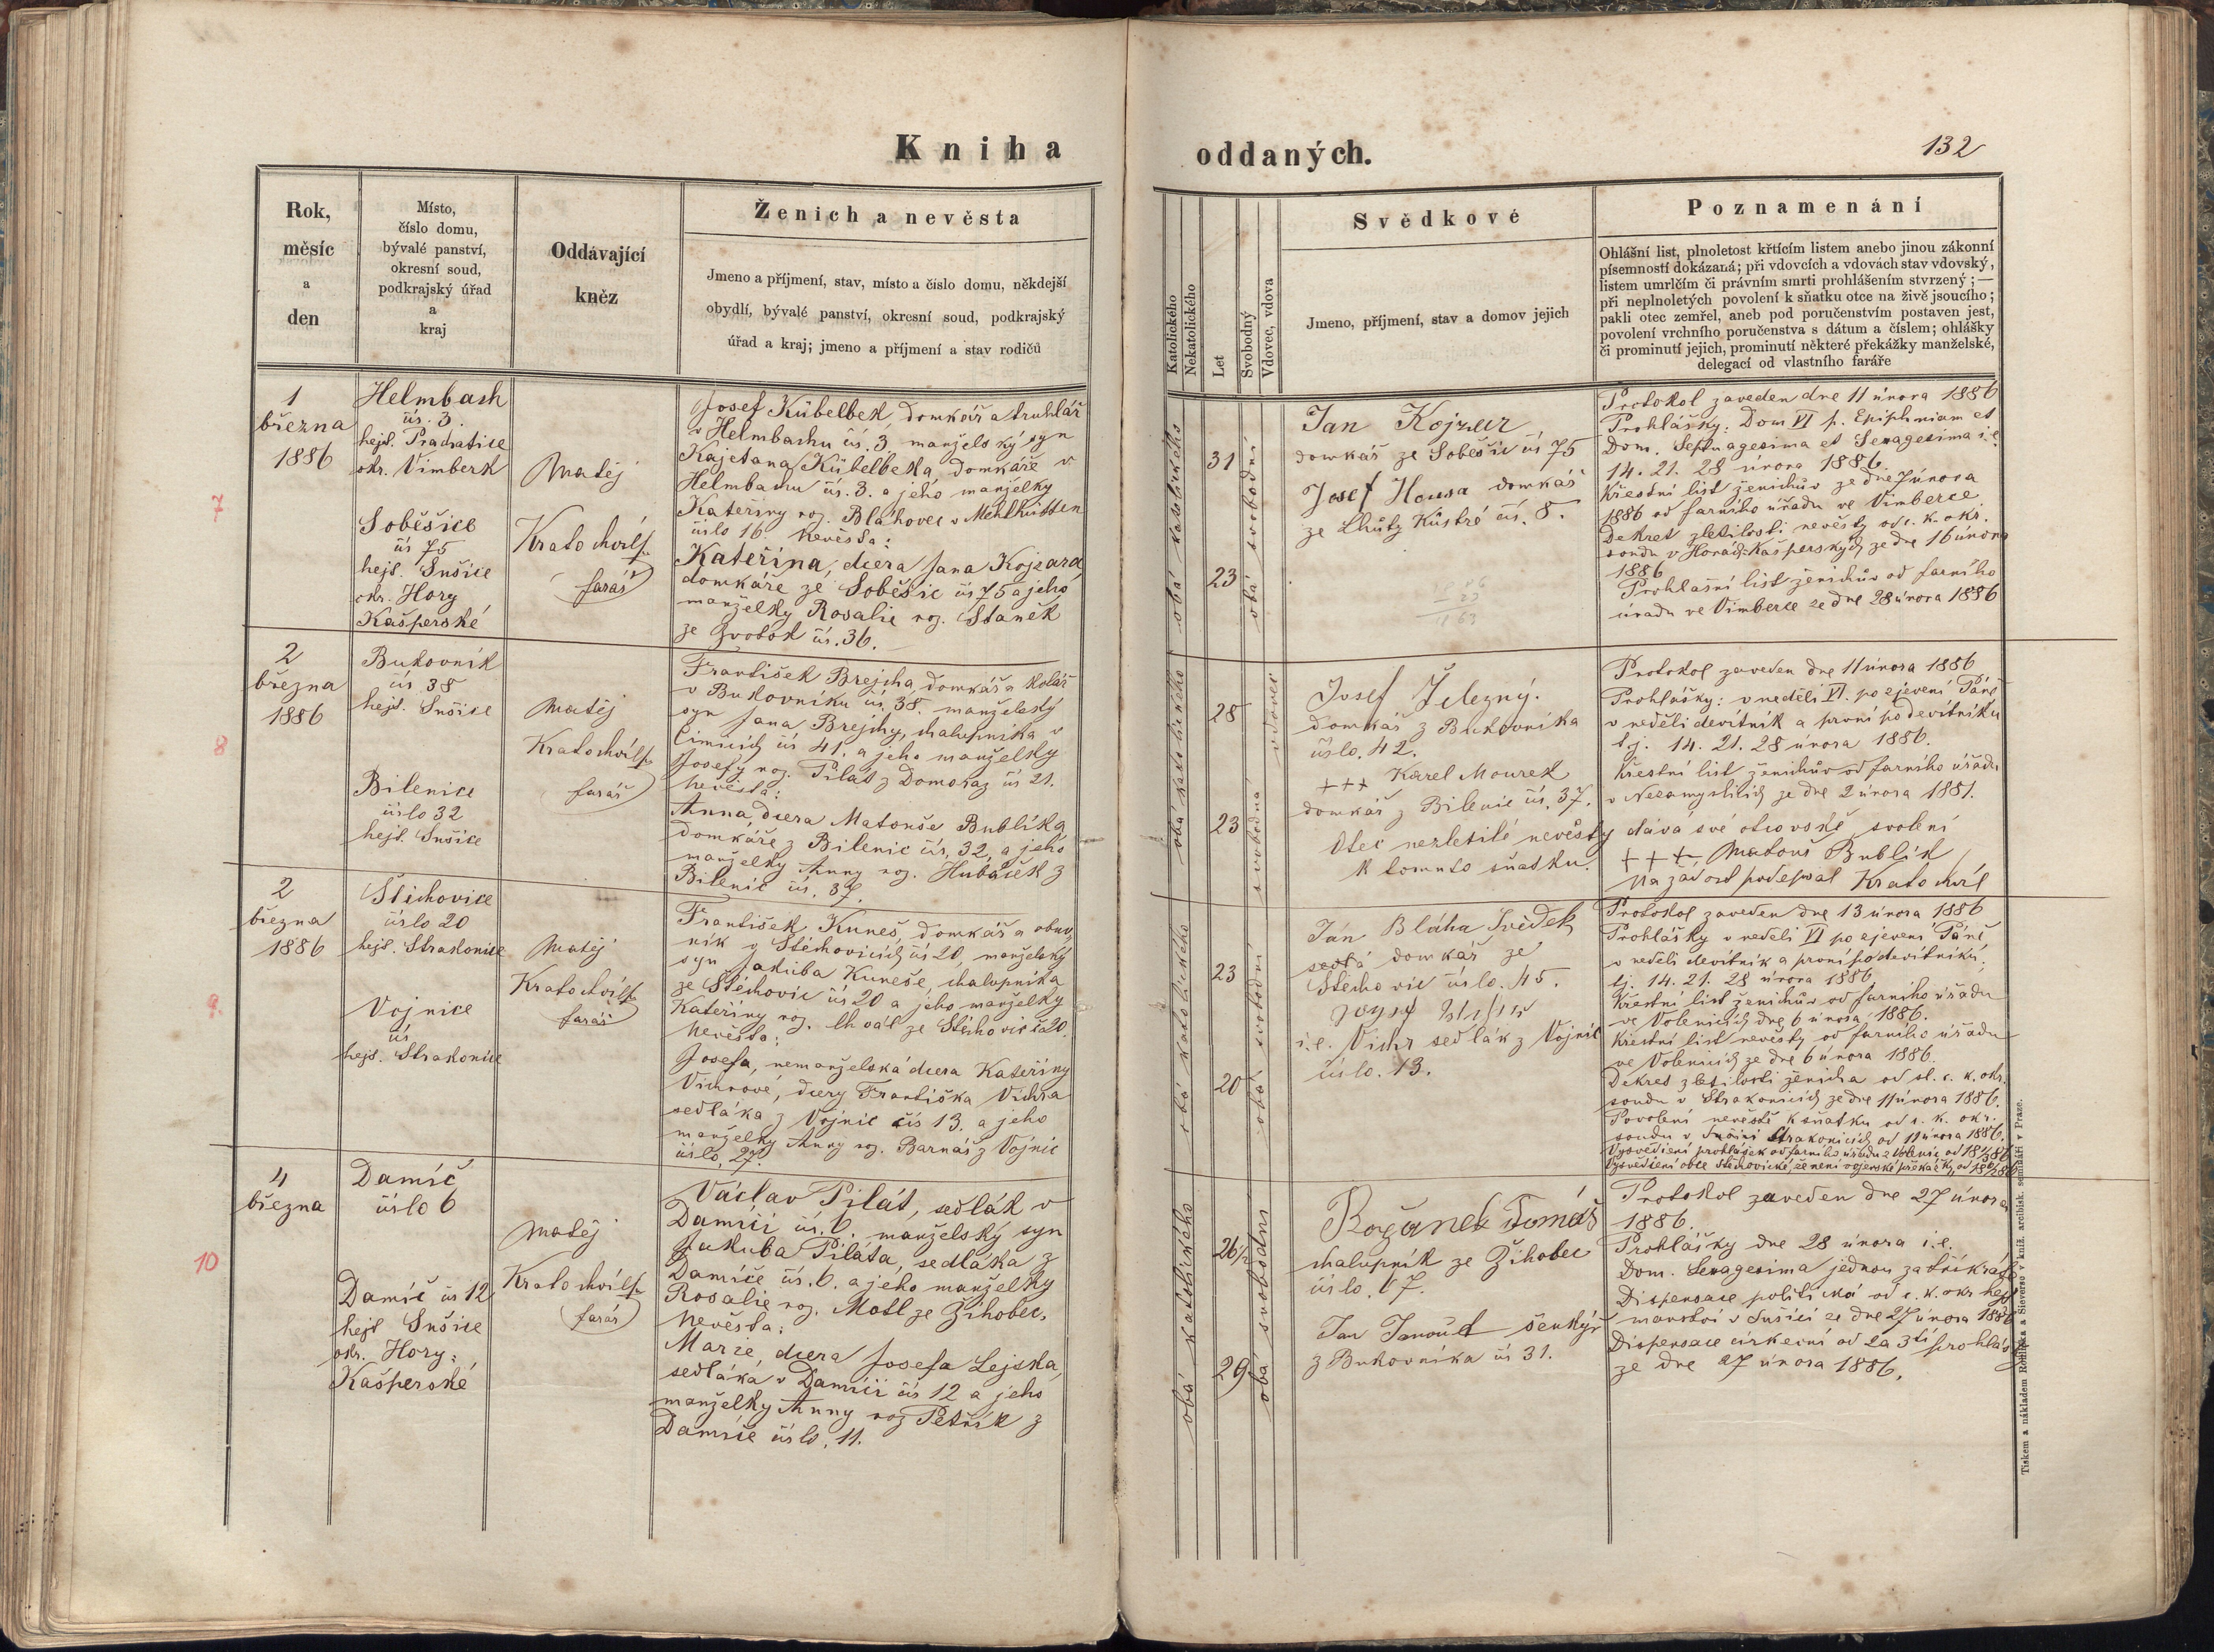 Kniha
oddaných.
132
Rok,
měsíc
a
den
Místo,
číslo domu,
bývalé panství,
okresní soud,
podkrajský úřad
a
kraj
Oddávající
kněz
Ženich a nevěsta
Jmeno a příjmení, stav, místo a číslo domu, někdejší
obydlí, bývalé panství, okresní soud, podkrajský
úřad a kraj; jmeno a příjmení a stav rodičů
Katolického
Nekatolického
Let
Svobodný
Vdovec, vdova
Svědkové
Jmeno, příjmení, stav a domov jejich
Poznamenání
Ohlášní list, plnoletost křtícím listem anebo jinou zákonní
písemností dokázaná; při vdovcích a vdovách stav vdovský,
listem umrlčím či právním smrti prohlášením stvrzený; —
při neplnoletých povolení k sňatku otce na živě jsoucího;
pakli otec zemřel, aneb pod poručenstvím postaven jest,
povolení vrchního poručenstva s dátum a číslem; ohlášky
či prominutí jejich, prominutí některé překážky manželské,
delegací od vlastního faráře
7
1
března
1886
Helmbach
čís. 3.
hejt. Prachatice
okr. Vimberk
Soběšice
čís 75
hejt. Sušice
okr. Hory
Kašperské
Matěj
Kratochvíl
farář
Josef Kübelbek, domkář a truhlář
v Helmbachu čís. 3 manželský syn
Kajetana Kübelbeka, domkáře v
Helmbachu čís. 3. a jeho manželky
Kateřiny roz. Bláhovec v Mehlhütten
číslo 16. Nevěsta:
Kateřina, dcera Jana Kojzara,
domkáře ze Soběšic čís 75 a jeho
manželky Rosalie roz. Staněk
ze Zvotok čís. 36.
obá katolického
31
23
obá svobodní
Jan Kojzar
domkář ze Soběšic čís 75
Josef Housa domkář
ze Lhůty Kůstré čís. 8.
Protokol zaveden dne 11 února 1886
Prohlášky: Dom VI p. Epiphniam et
Dom. Septuagesima et Sexagesima i.e.
14. 21. 28 února 1886.
Křestní list ženichův ze dne 7 února
1886 od farního úřadu ve Vimberce
Dekret zletilosti nevěsty od c. k. okr.
soudu v Horách Kašperských ze dne 16 února
1886
Prohlašní list ženichův od farního
úradu ve Vimberce ze dne 28 února 1886
8
2
března
1886
Bukovník
čís 38
hejt. Sušice
Bilenice
číslo 32
hejt. Sušice
Matěj
Kratochvíl
farář
František Brejcha, domkář a kolář
v Bukovníku čís. 38. manželský
syn Jana Brejchy, chalupníka v
Čimicích čís 41. a jeho manželky
Josefy roz. Pilát z Domoraz čís 21.
Nevěsta:
Anna, dcera Matouše Bublíka
domkáře z Bilenic čís. 32, a jeho
manželky Anny roz. Hubáček z
Bilenic čís. 37.
obá katolického
28
23
vdovec
svobodná
Josef Železný.
domkář z Bukovníka
číslo. 42.
+++ Karel Mourek
domkář z Bilenic čís. 37.
Otec nezletilé nevěsty dává své otcovské svolení
k tomuto sňatku.
Protokol zaveden dne 11 února 1886
Prohlášky: v neděli VI. po zjevení Páně
v neděli devítník a první po devítníku
t.j. 14. 21. 28 února 1886.
Křestní list ženichův od farního úřadu
v Nezamyslicích ze dne 2 února 1881.
+++ Matouš Bublík
Na žádost podepsal Kratochvíl
9.
2
března
1886
Štěchovice
číslo 20
hejt. Strakonice
Vojnice
čís
hejt. Strakonice
Matěj
Kratochvíl
farář
František Kuneš, domkář a obuv
ník v Štěchovicích čís 20, manželský
syn Jakuba Kuneše, chalupníka
ze Štěchovic čís 20 a jeho manželky
Kateřiny roz. Chvál ze Štěchovic čís 20.
Nevěsta:
Josefa, nemanželská dcera Kateřiny
Vichrové, dcery Františka Vichra
sedláka z Vojnic čís 13. a jeho
manželky Anny roz. Barnáš z Vojnic
číslo, 27.
obá katolického
23
20
obá svobodní
Ján Bláha Svědek
domkář ze
Štěchovic číslo. 45.
i.e. Vichr sedlák z Vojnic
číslo. 13.
Protokol zaveden dne 13 února 1886
Prohlášky v neděli VI po zjevení Páně
v neděli devítník a první po devítníku,
tj. 14. 21. 28 února 1886.
Křestní list ženichův od farního úřadu
ve Volenicích dne 6 února 1886.
Křestní list nevěsty od farního úřadu
ve Volenicích ze dne 6 února 1886.
Dekret zletilosti ženicha od sl. c. k. okr.
soudu v Strakonicích ze dne 11 února 1886.
Povolení nevěstě k sňatku od c. k. okr.
soudu v Strakonicích od 11 února 1886.
10
4
března
Damíč
číslo 6
Damíč čís 12
hejt Sušice
okr. Hory:
Kašperské
Matěj
Kratochvíl
farář
Václav Pilát, sedlák v
Damíči čís. 6. manželský syn
Jakuba Piláta, sedláka z
Damíče čís. 6. a jeho manželky
Rosalie roz. Motl ze Žihobec.
Nevěsta:
Marie, dcera Josefa Lejska,
sedláka v Damíči čís 12 a jeho
manželky Anny roz Petřík z
Damíče číslo. 11.
obá katolického
26 1/2
29
obá svobodní
Rožánek Tomáš
chalupník ze Žihobec
číslo. 17.
Jan Janouch šenkýř
z Bukovníka čís 31.
Protokol zaveden dne 27 února
1886.
Prohlášky dne 28 února i.e.
Dom. Sexagesima jednou za třikráte
Dispensace politická od c. k. okr hejt
manství v Sušici ze dne 27 února 1886
Dispensace církevní od 2 a 3tí prohlášky
ze dne 27 února 1886.
Tiskem a nákladem Rohlíčka a Sieverse v kníž. arcibisk. semináři v Praze.